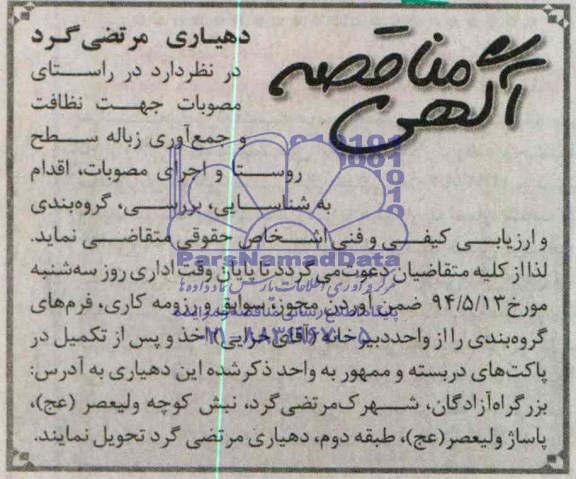 آگهی مناقصه
دهیاری مرتضی گرد
در نظر دارد در راستای
مصوبات جهت نظافت
و جمع‌آوری زباله سطح
روستا و اجرای مصوبات، اقدام
به شناسایی، بررسی، گروه‌بندی
و ارزیابی کیفی و فنی اشخاص حقوقی متقاضی نماید.
لذا از کلیه متقاضیان دعوت می‌گردد تا پایان وقت اداری روز سه‌شنبه
مورخ ۹۴/۵/۱۳ ضمن آوردن مجوز، سوابق و رزومه کاری، فرم‌های
گروه‌بندی را از واحد دبیرخانه (آقای خزایی) اخذ و پس از تکمیل در
پاکت‌های دربسته و ممهور به واحد ذکر شده این دهیاری به آدرس:
بزرگراه آزادگان، شهرک مرتضی گرد، نبش کوچه ولیعصر (عج)،
پاساژ ولیعصر (عج)، طبقه دوم، دهیاری مرتضی گرد تحویل نمایند.
ParsNamadData